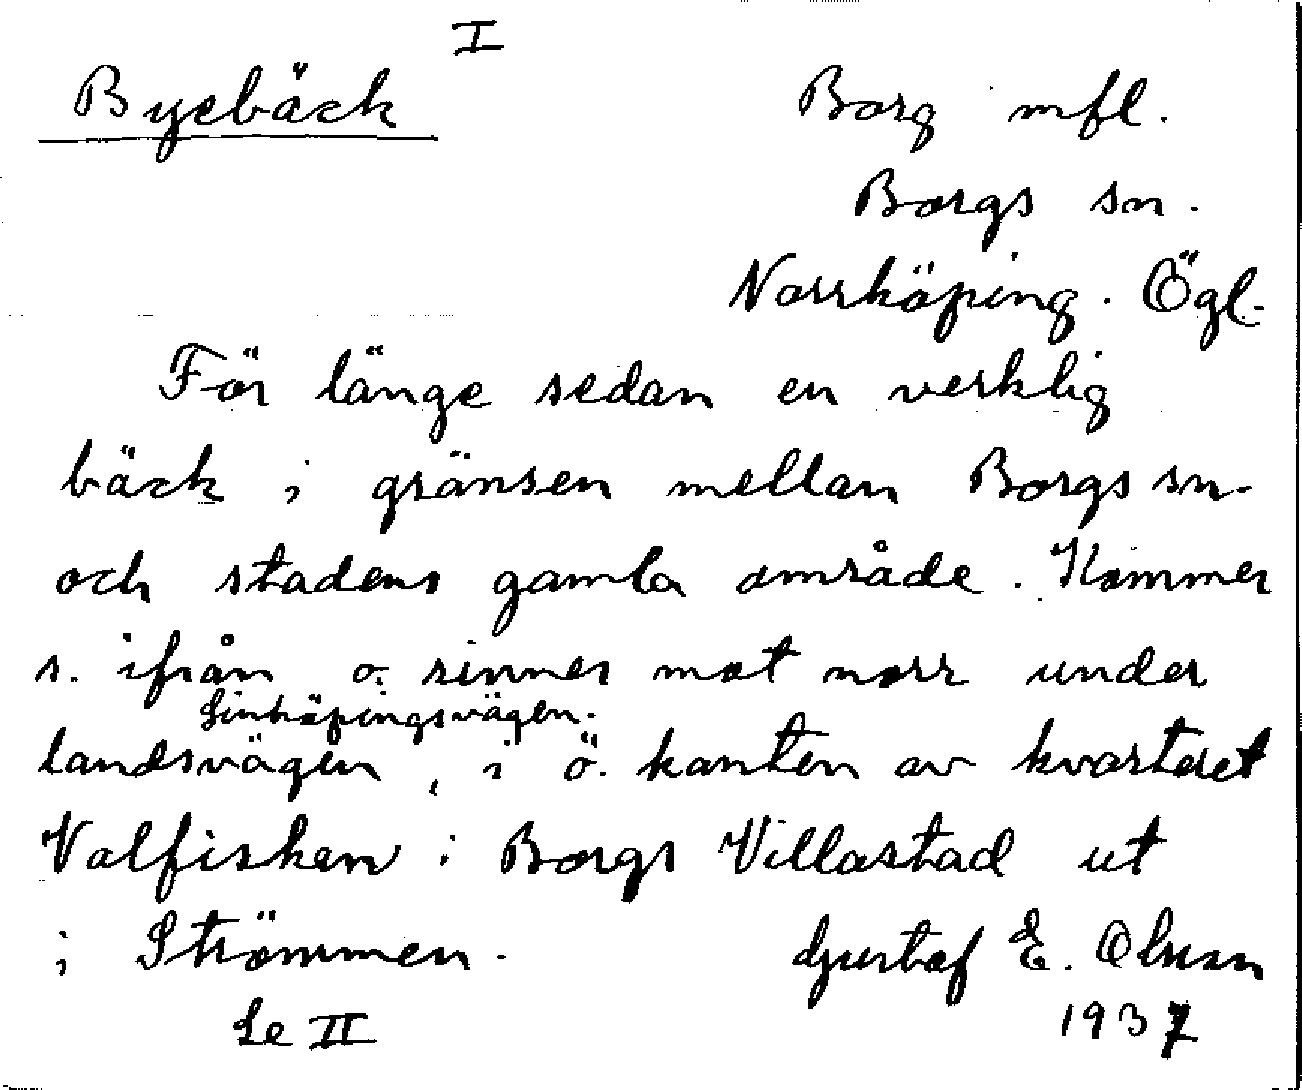 I
Byebäck
Borg mfl.
Borgs sn.
Norrköping. Ögl.
För länge sedan en verklig
bäck i gränsen mellan Borgs sn.
och stadens gamla område. Kommer
s. ifrån o. rinner mot norr under
Linköpingsvägen.
landsvägen, i ö. kanten av kvarteret
Valfisken i Borgs Villastad ut
i Strömmen.
Gustaf E. Olsson
Se II
1937